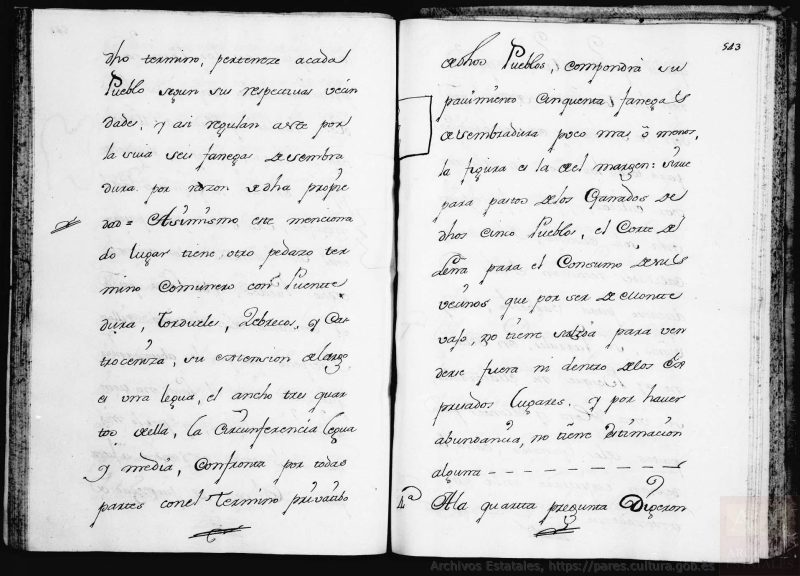 dho termino, perteneze acada
Pueblo segun sus respectivas vecin
dades, y asi regulan aeste por
la suia seis fanegas de sembra
dura por razon de dha propie
dad = Asimismo este menciona
do lugar tiene otro pedazo ter
mino Comunero con Puente
dura, Tordueles, Zebrecos, y Cas
troceniza, su extension de largo
es una legua, el ancho tres quar
tos de ella, la Circunferencia legua
y media, Confronta por todas
partes con el Termino privatibo
543
de dhos Pueblos, compondrà su
pavimiento Cinquenta fanegas
de sembradura poco mas, ò menos,
la figura es la del margen: sirve
para pastos de los Ganados de
dhos cinco Pueblos, el Corte de
Leña para el Consumo de sus
vecinos que por ser de Monte
vajo, no tiene salida para ven
derse fuera ni dentro de los Ex
presados Lugares, y por haver
abundancia, no tiene estimacion
alguna
4ª Ala quarta pregunta Digeron
Archivos Estatales, https://pares.cultura.gob.es